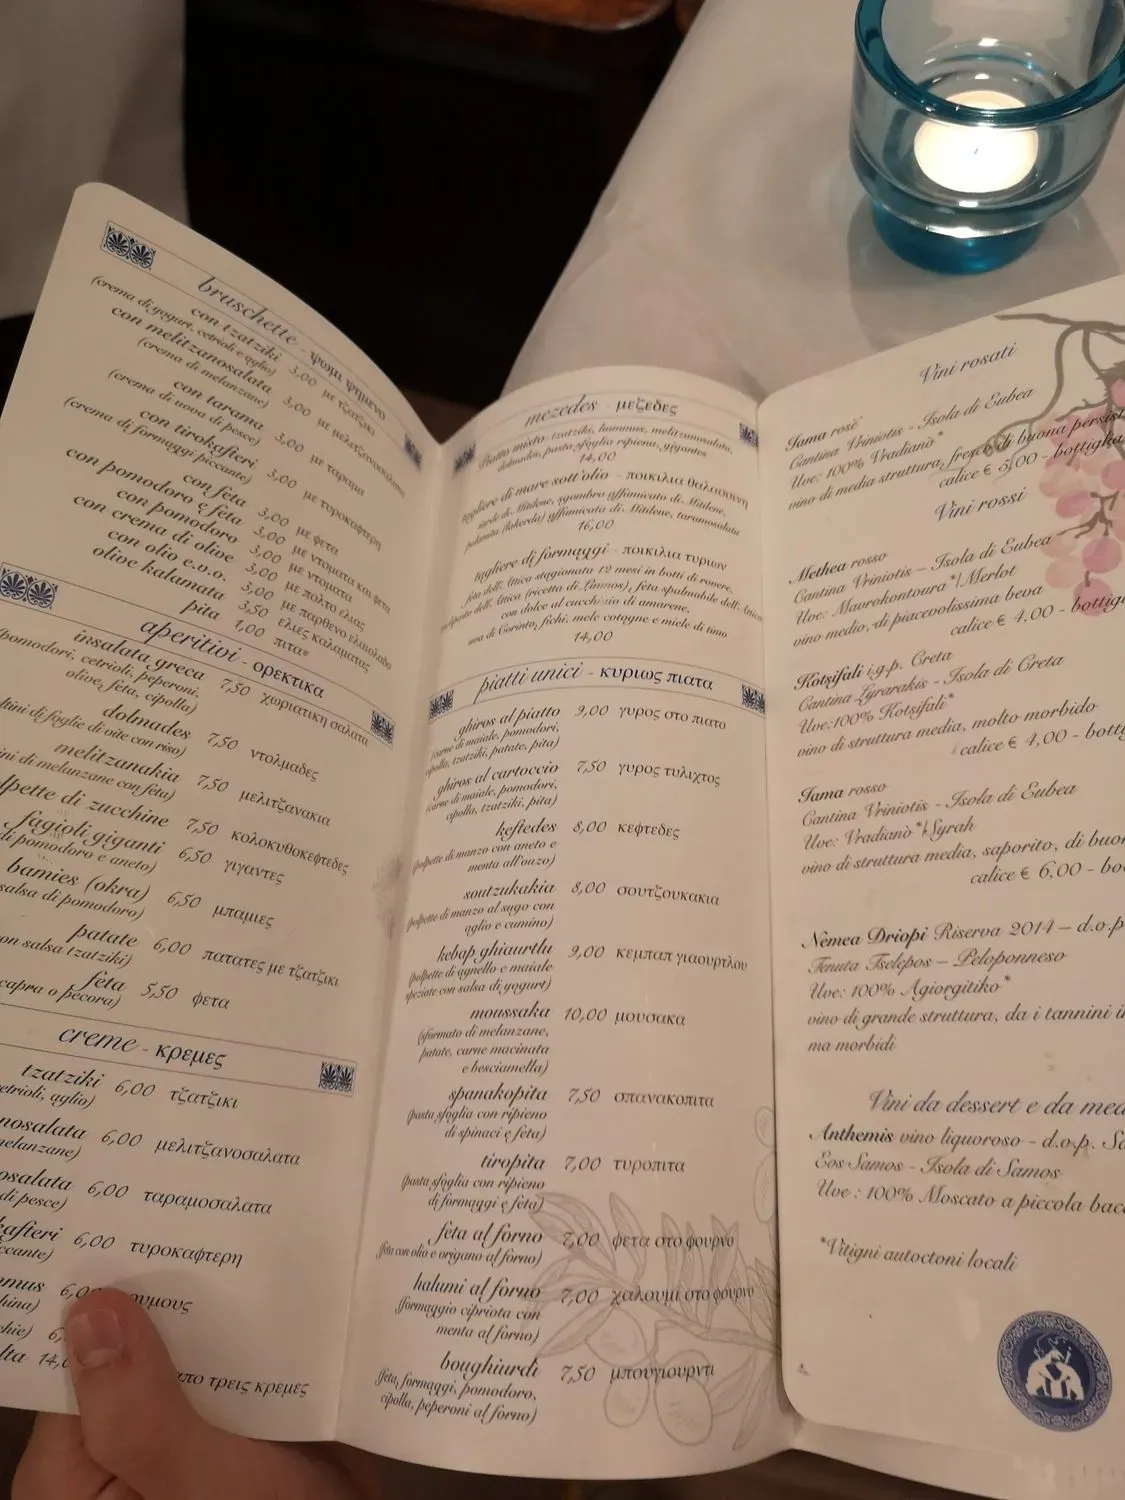 bruschette - ψωμι ψημενο
con tzatziki 3,00 με τζατζικι
(crema di yogurt, cetrioli e aglio)
con melitzanosalata 3,00 με μελιτζανοσαλατα
(crema di melanzane)
con tarama 3,00 με ταραμα
(crema di uova di pesce)
con tirokafteri 3,00 με τυροκαφτερη
(crema di formaggi piccante)
con feta 3,00 με φετα
con pomodoro e feta 3,00 με ντοματα και φετα
con pomodoro 3,00 με ντοματα
con crema di olive 3,00 με πολτο ελιας
con olio e.v.o. 3,00 με παρθενο ελαιολαδο
olive kalamata 3,50 ελιες καλαματας
pita 1,00 πιτα
aperitivi - ορεκτικα
insalata greca 7,50 χωριατικη σαλατα
(pomodori, cetrioli, peperoni,
olive, feta, cipolla)
dolmades 7,50 ντολμαδες
di foglie di vite con riso)
melitzanakia 7,50 μελιτζανακια
di melanzane con feta)
di zucchine 7,50 κολοκυθοκεφτεδες
fagioli giganti 6,50 γιγαντες
di pomodoro e aneto)
bamies (okra) 6,50 μπαμιες
salsa di pomodoro)
patate 6,00 πατατες με τζατζικι
con salsa tzatziki)
feta 5,50 φετα
capra o pecora)
creme - κρεμες
tzatziki 6,00 τζατζικι
aglio)
6,00 μελιτζανοσαλατα
6,00 ταραμοσαλατα
di pesce)
6,00 τυροκαφτερη
απο τρεις κρεμες
mezedes - μεζεδες
Piatto misto: tzatziki, hummus, melitzanosalata,
dolmades, pasta sfoglia ripiena, gigantes
14,00
tagliere di mare sott'olio - ποικιλια θαλασσινη
sarde di Mitilene, sgombro affumicato di Mitilene,
palamita (lakerda) affumicata di Mitilene, taramosalata
16,00
tagliere di formaggi - ποικιλια τυριων
feta dell'Attica stagionata 12 mesi in botti di rovere,
dell'Attica (ricetta di Limnos), feta spalmabile dell'Attica
con dolce al cucchiaio di amarene,
uva di Corinto, fichi, mele cotogne e miele di timo
14,00
piatti unici - κυριως πιατα
ghiros al piatto 9,00 γυρος στο πιατο
(carne di maiale, pomodori,
cipolla, tzatziki, patate, pita)
ghiros al cartoccio 7,50 γυρος τυλιχτος
(carne di maiale, pomodori,
cipolla, tzatziki, pita)
keftedes 8,00 κεφτεδες
(polpette di manzo con aneto e
menta all'ouzo)
soutzukakia 8,00 σουτζουκακια
(polpette di manzo al sugo con
aglio e cumino)
kebap ghiaurtlu 9,00 κεμπαπ γιαουρτλου
(polpette di agnello e maiale
speziate con salsa di yogurt)
moussaka 10,00 μουσακα
(sformato di melanzane,
patate, carne macinata
e besciamella)
spanakopita 7,50 σπανακοπιτα
(pasta sfoglia con ripieno
di spinaci e feta)
tiropita 7,00 τυροπιτα
(pasta sfoglia con ripieno
di formaggi e feta)
feta al forno 7,00 φετα στο φουρνο
(feta con olio e origano al forno)
halumi al forno 7,00 χαλουμι στο φουρνο
(formaggio cipriota con
menta al forno)
boughiurdi 7,50 μπουγιουρντι
(feta, formaggi, pomodoro,
cipolla, peperoni al forno)
Vini rosati
Iama rosè
Cantina Vriniotis - Isola di Eubea
Uve: 100% Vradianò*
vino di media struttura, fresco di buona persist
calice € 5,00 - bottiglia
Vini rossi
Methea rosso
Cantina Vriniotis – Isola di Eubea
Uve: Mavrokontoura*/Merlot
vino medio, di piacevolissima beva
calice € 4,00 - bottig
Kotsifali i.g.p. Creta
Cantina Lyrarakis - Isola di Creta
Uve:100% Kotsifali*
vino di struttura media, molto morbido
calice € 4,00 - botti
Iama rosso
Cantina Vriniotis - Isola di Eubea
Uve: Vradianò*/Syrah
vino di struttura media, saporito, di buo
calice € 6,00 - bo
Nemea Driopi Riserva 2014 – d.o.p
Tenuta Tselepos – Peloponneso
Uve: 100% Agiorgitiko*
vino di grande struttura, da i tannini i
ma morbidi
Vini da dessert e da med
Anthemis vino liquoroso - d.o.p. Sa
Eos Samos - Isola di Samos
Uve : 100% Moscato a piccola bac
*Vitigni autoctoni locali